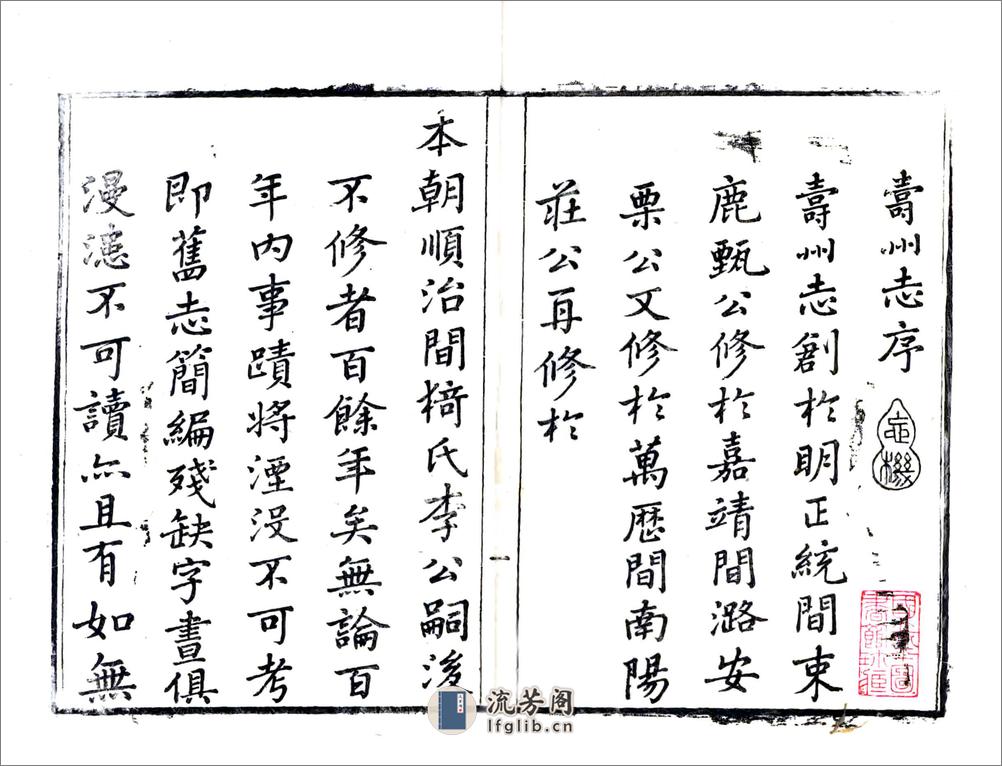 壽州志序
忘機
壽州志創於明正統間束
鹿甄公修於嘉靖間潞安
栗公又修於萬歷間南陽
莊公再修於
一
本朝順治間椅氏李公嗣後
不修者百餘年矣無論百
年内事蹟將湮没不可考
即舊志簡編殘缺字畫俱
漫漶不可讀亦且有如無
流芳阁
lfglib.cn